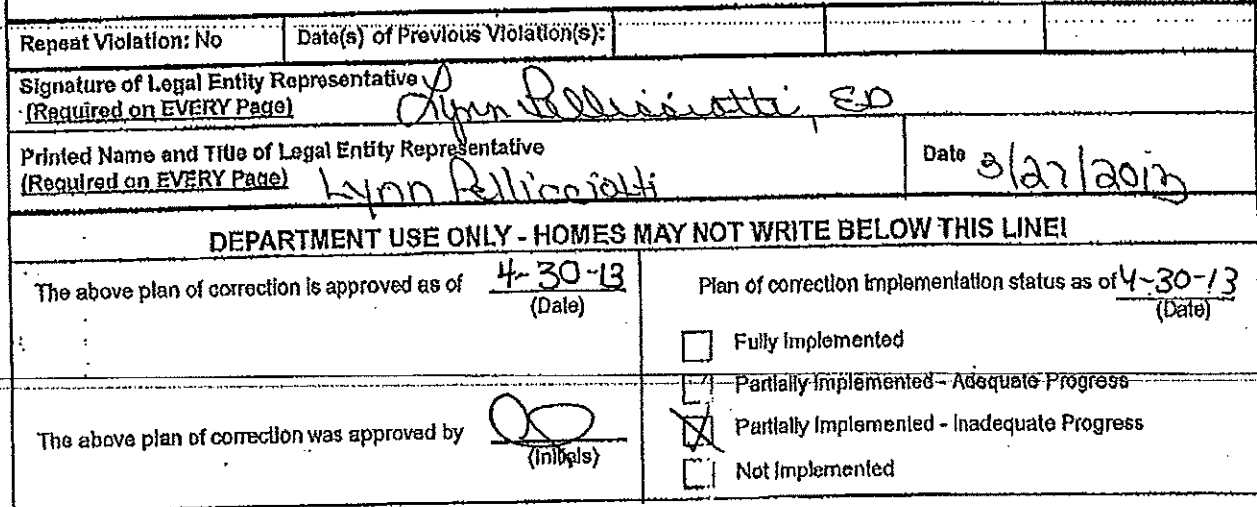 Repeat Violation: No Date(s) of Previous Violation(s):
Signature of Legal Entity Representative
(Required on EVERY Page) Lynn Pellicciotti, ED
Printed Name and Title of Legal Entity Representative
(Required on EVERY Page) Lynn Pellicciotti
Date 3/27/2013
DEPARTMENT USE ONLY - HOMES MAY NOT WRITE BELOW THIS LINE!
The above plan of correction is approved as of 4-30-13
(Date)
Plan of correction implementation status as of 4-30-13
(Date)
Fully Implemented
Partially Implemented - Adequate Progress
Partially Implemented - Inadequate Progress
Not Implemented
The above plan of correction was approved by
(Initials)